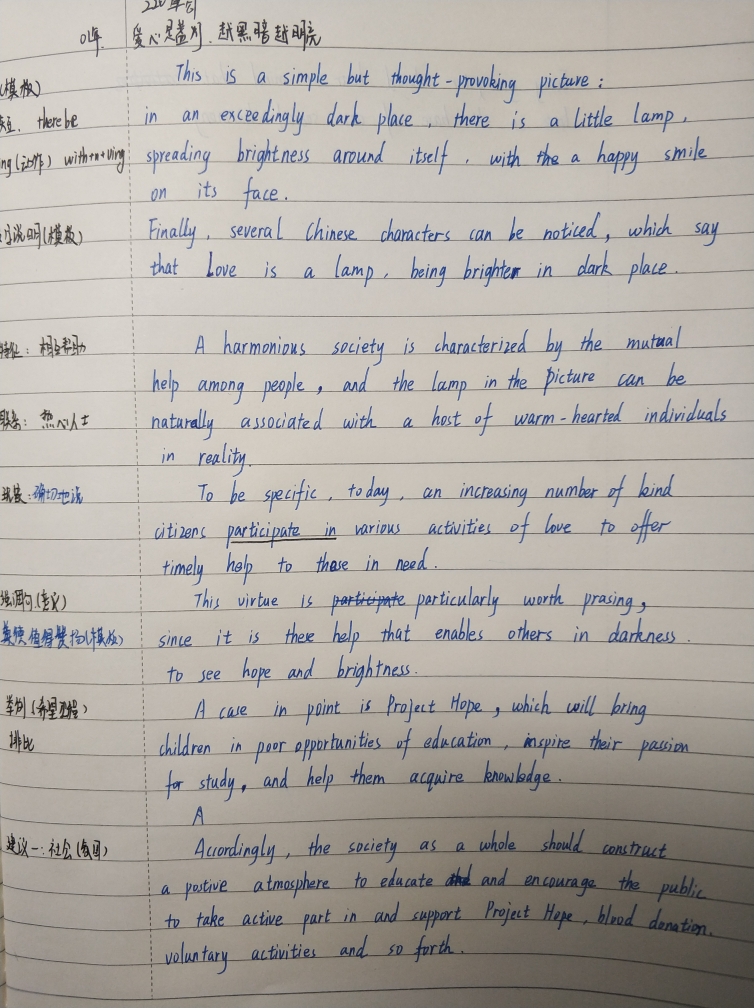 01年. 爱心是盏灯.越黑暗越明亮
(模板) This is a simple but thought-provoking picture :
there be in an exceedingly dark place, there is a little lamp,
ng(动作) with+n+ving spreading brightness around itself, with the a happy smile
on its face.
说明(模板) Finally, several Chinese characters can be noticed, which say
that Love is a lamp, being brighter in dark place.
特征: 相互帮助 A harmonious society is characterized by the mutual
help among people, and the lamp in the picture can be
联系: 热心人士 naturally associated with a host of warm-hearted individuals
in reality.
确切地说 To be specific, today, an increasing number of kind
citizens participate in various activities of love to offer
timely help to those in need.
强调句(意义) This virtue is participate particularly worth prasing,
美德值得赞扬(模板) since it is there help that enables others in darkness.
to see hope and brightness.
举例(希望工程) A case in point is Project Hope, which will bring
排比 children in poor opportunities of education, inspire their passion
for study, and help them acquire knowledge.
A
建议一:社会 Accordingly, the society as a whole should construct
a postive atmosphere to educate and and encourage the public
to take active part in and support Project Hope, blood donation.
voluntary activities and so forth.